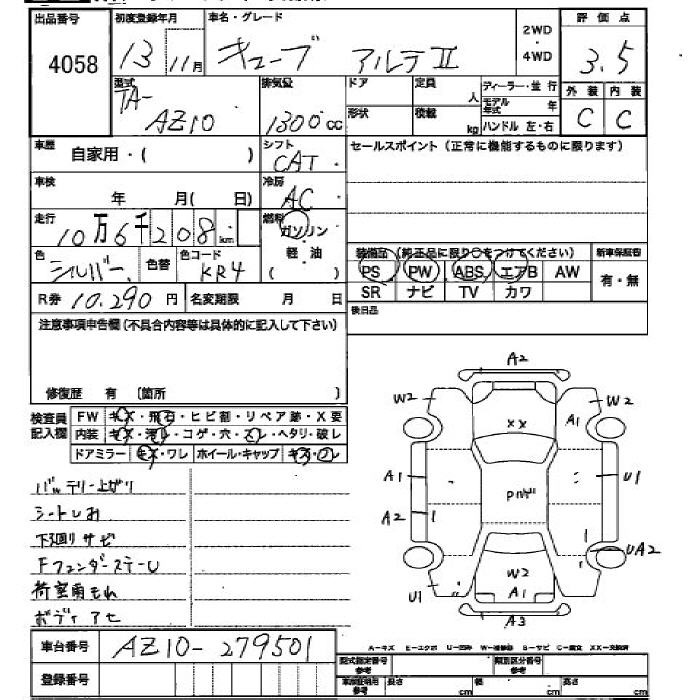 出品番号 初度登録年月 車名・グレード 2WD・4WD 評価点
4058 13 11月 キューブ アルテⅡ 3.5
型式 排気量 ドア 定員 人 ディーラー・並行 外装 内装
TA-AZ10 1300cc 形状 積載 kg モデル年式 年 ハンドル 左・右 C C
車歴 自家用・( ) シフト CAT セールスポイント(正常に機能するものに限ります)
車検 年 月(日) 冷房 AC
走行 10万6千208km 燃料 ガソリン・軽油 ( )
色 シルバー 色替 色コード KR4
装備品(純正品に限り○をつけてください) 新車保証書
PS PW ABS エアB AW 有・無
SR ナビ TV カワ
R券 10,290円 名変期限 月 日 後日品
注意事項申告欄(不具合内容等は具体的に記入して下さい)
修復歴 有 〔箇所 〕
検査員記入欄 FW キズ・飛石・ヒビ割・リペア跡・X要
内装 キズ・汚レ・コゲ・穴・スレ・ヘタリ・破レ
ドアミラー キズ・ワレ ホイール・キャップ キズ・ワレ
バッテリー上がり
シートしお
下廻りサビ
FフェンダーステーU
荷室雨もれ
ボディアセ
A2
W2 W2
XX A1
A1 U1
A2 UA2
W2
U1 A1
A3
車台番号 AZ10-279501
登録番号
A-キズ E-エクボ U-凹み W-補修跡 B-サビ C-腐食 XX-交換済
型式指定番号 参考 類別区分番号 参考
車庫証明用 参考 長さ cm 幅 cm 高さ cm